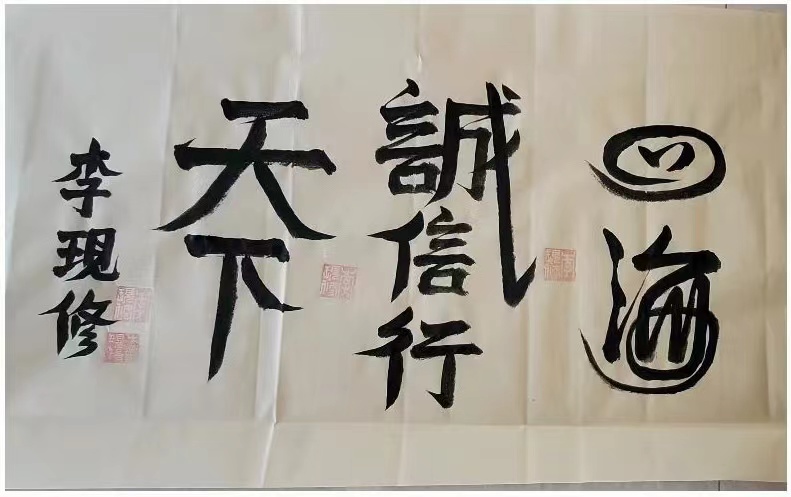 四海
誠信行
天下
李現修